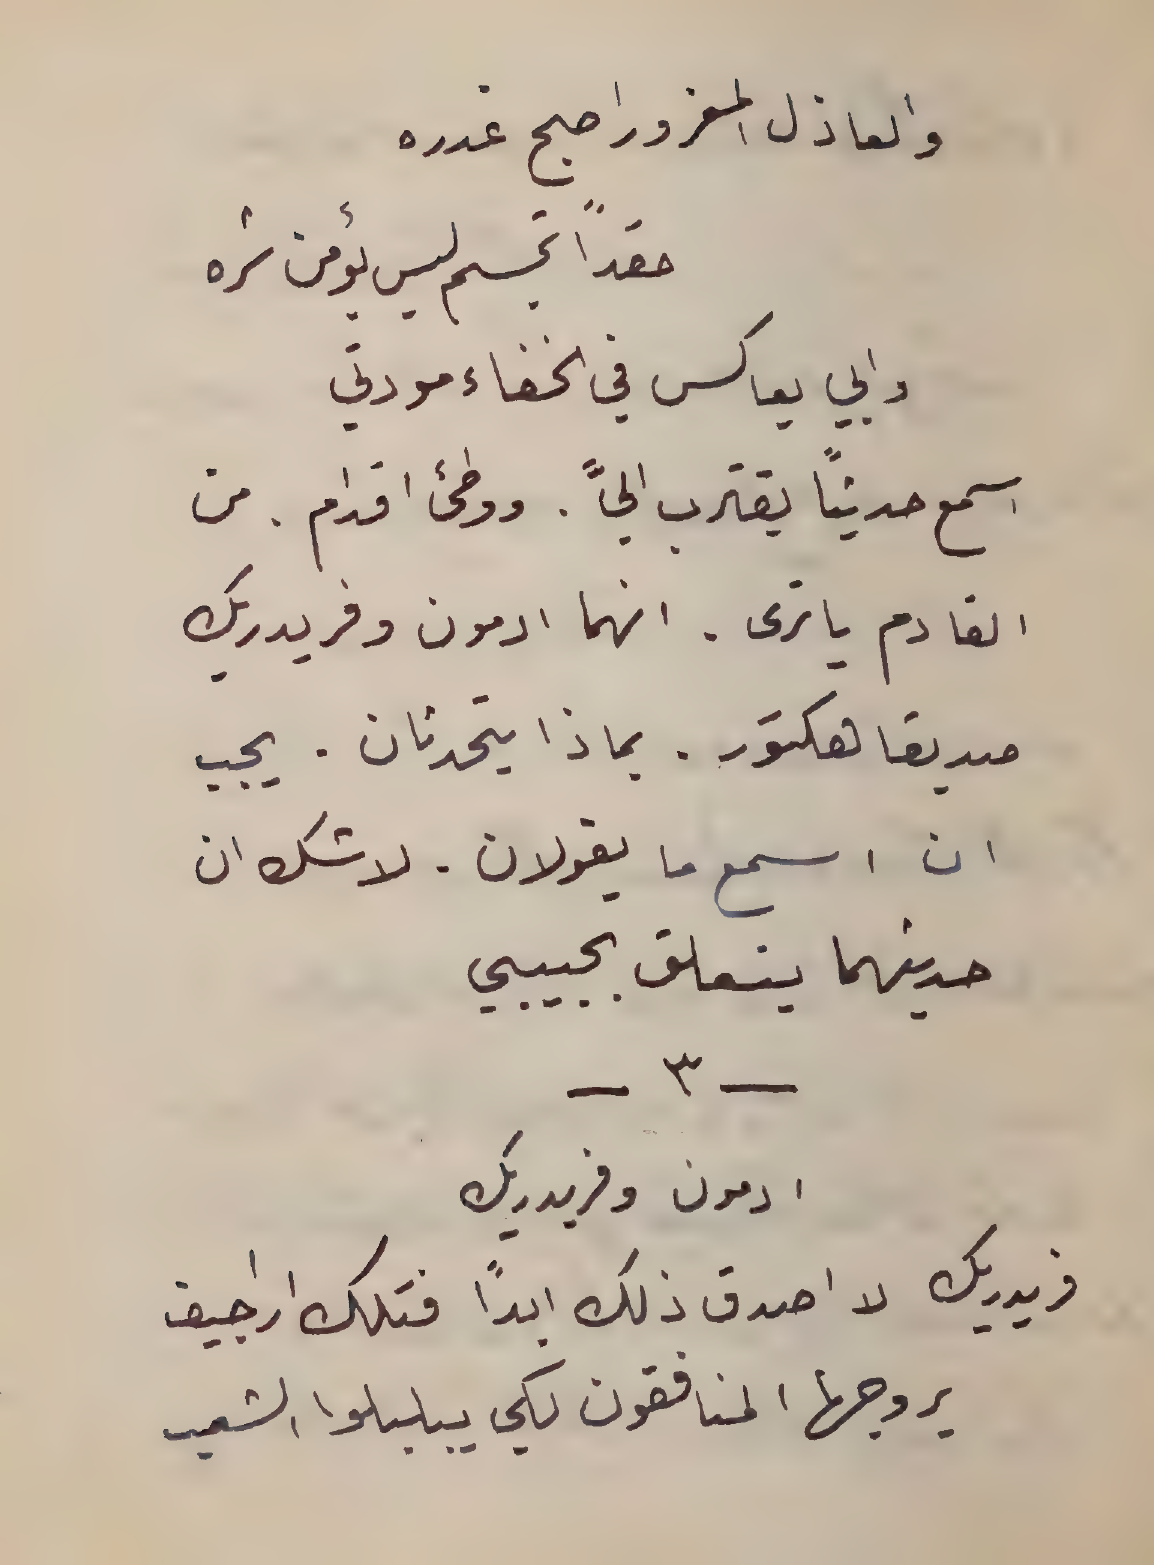 والعاذل المغرور اصبح غدره
حقداً تجسم ليس يؤمن شره
وابي يعاكس في الخفاء مودتي
اسمع حديثاً يقترب اليَّ . ووطئ اقدام . من
القادم يا ترى . انهما ادمون وفريدريك
صديقا هكتور . بماذا يتحدثان . يجب
ان اسمع ما يقولان . لا شك ان
حديثهما يتعلق بحبيبي
— ٣ —
ادمون وفريدريك
فريدريك لا اصدق ذلك ابداً فتلك اراجيف
يروجها المنافقون لكي يبلبلوا الشعب